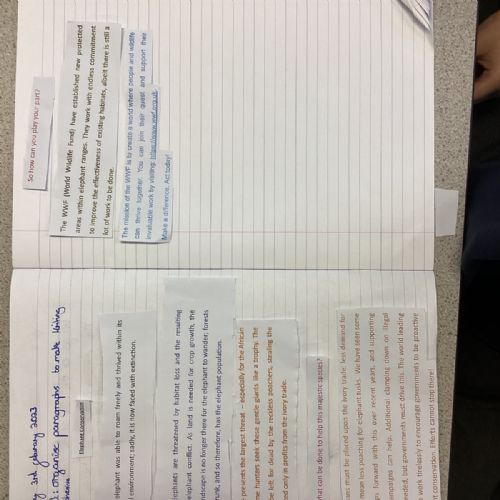 3rd February 2023
: organise paragraphs to make writing
Elephant Conservation
elephant was able to roam freely and thrived within its
environment; sadly, it is now faced with extinction.
elephants are threatened by habitat loss and the resulting
elephant conflict. As land is needed for crop growth, the
landscape is no longer there for the elephant to wander; forests
shrunk, and so therefore, has the elephant population.
presents the largest threat – especially for the African
hunters seek these gentle giants like a trophy. The
left for dead by the reckless poachers, stealing the
only in profits from the ivory trade.
hat can be done to help this majestic species?
must be placed upon the ivory trade: less demand for
mean less poaching for elephant tusks. We have seen some
forward with this over recent years, and supporting
campaigns can help. Additional clamping down on illegal
needed, but governments must drive this. The world leading
work tirelessly to encourage governments to be proactive
conservation. Efforts cannot stop there!
So how can you play your part?
The WWF (World Wildlife Fund) have established new protected
areas within elephant ranges. They work with endless commitment
to improve the effectiveness of existing habitats, albeit there is still a
lot of work to be done.
The mission of the WWF is to create a world where people and wildlife
can thrive together. You can join their quest and support their
invaluable work by visiting: https://www.wwf.org.uk
Make a difference. Act today!